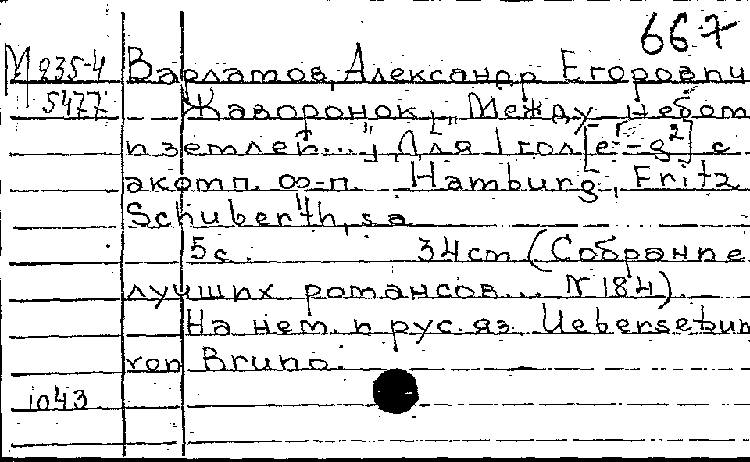 667
М 235-4 Варламов, Александр Егорови
5477 Жаворонок. „Между небом
и землей..." Для 1 гол [e¹-g²] с
акомп. ф-п. Hamburg, Fritz
Schuberth, s.a.
5с. 34cm (Собрание
лучших романсов... N 184).
На нем. и рус. яз. Uebersetzun
von Bruno.
1043